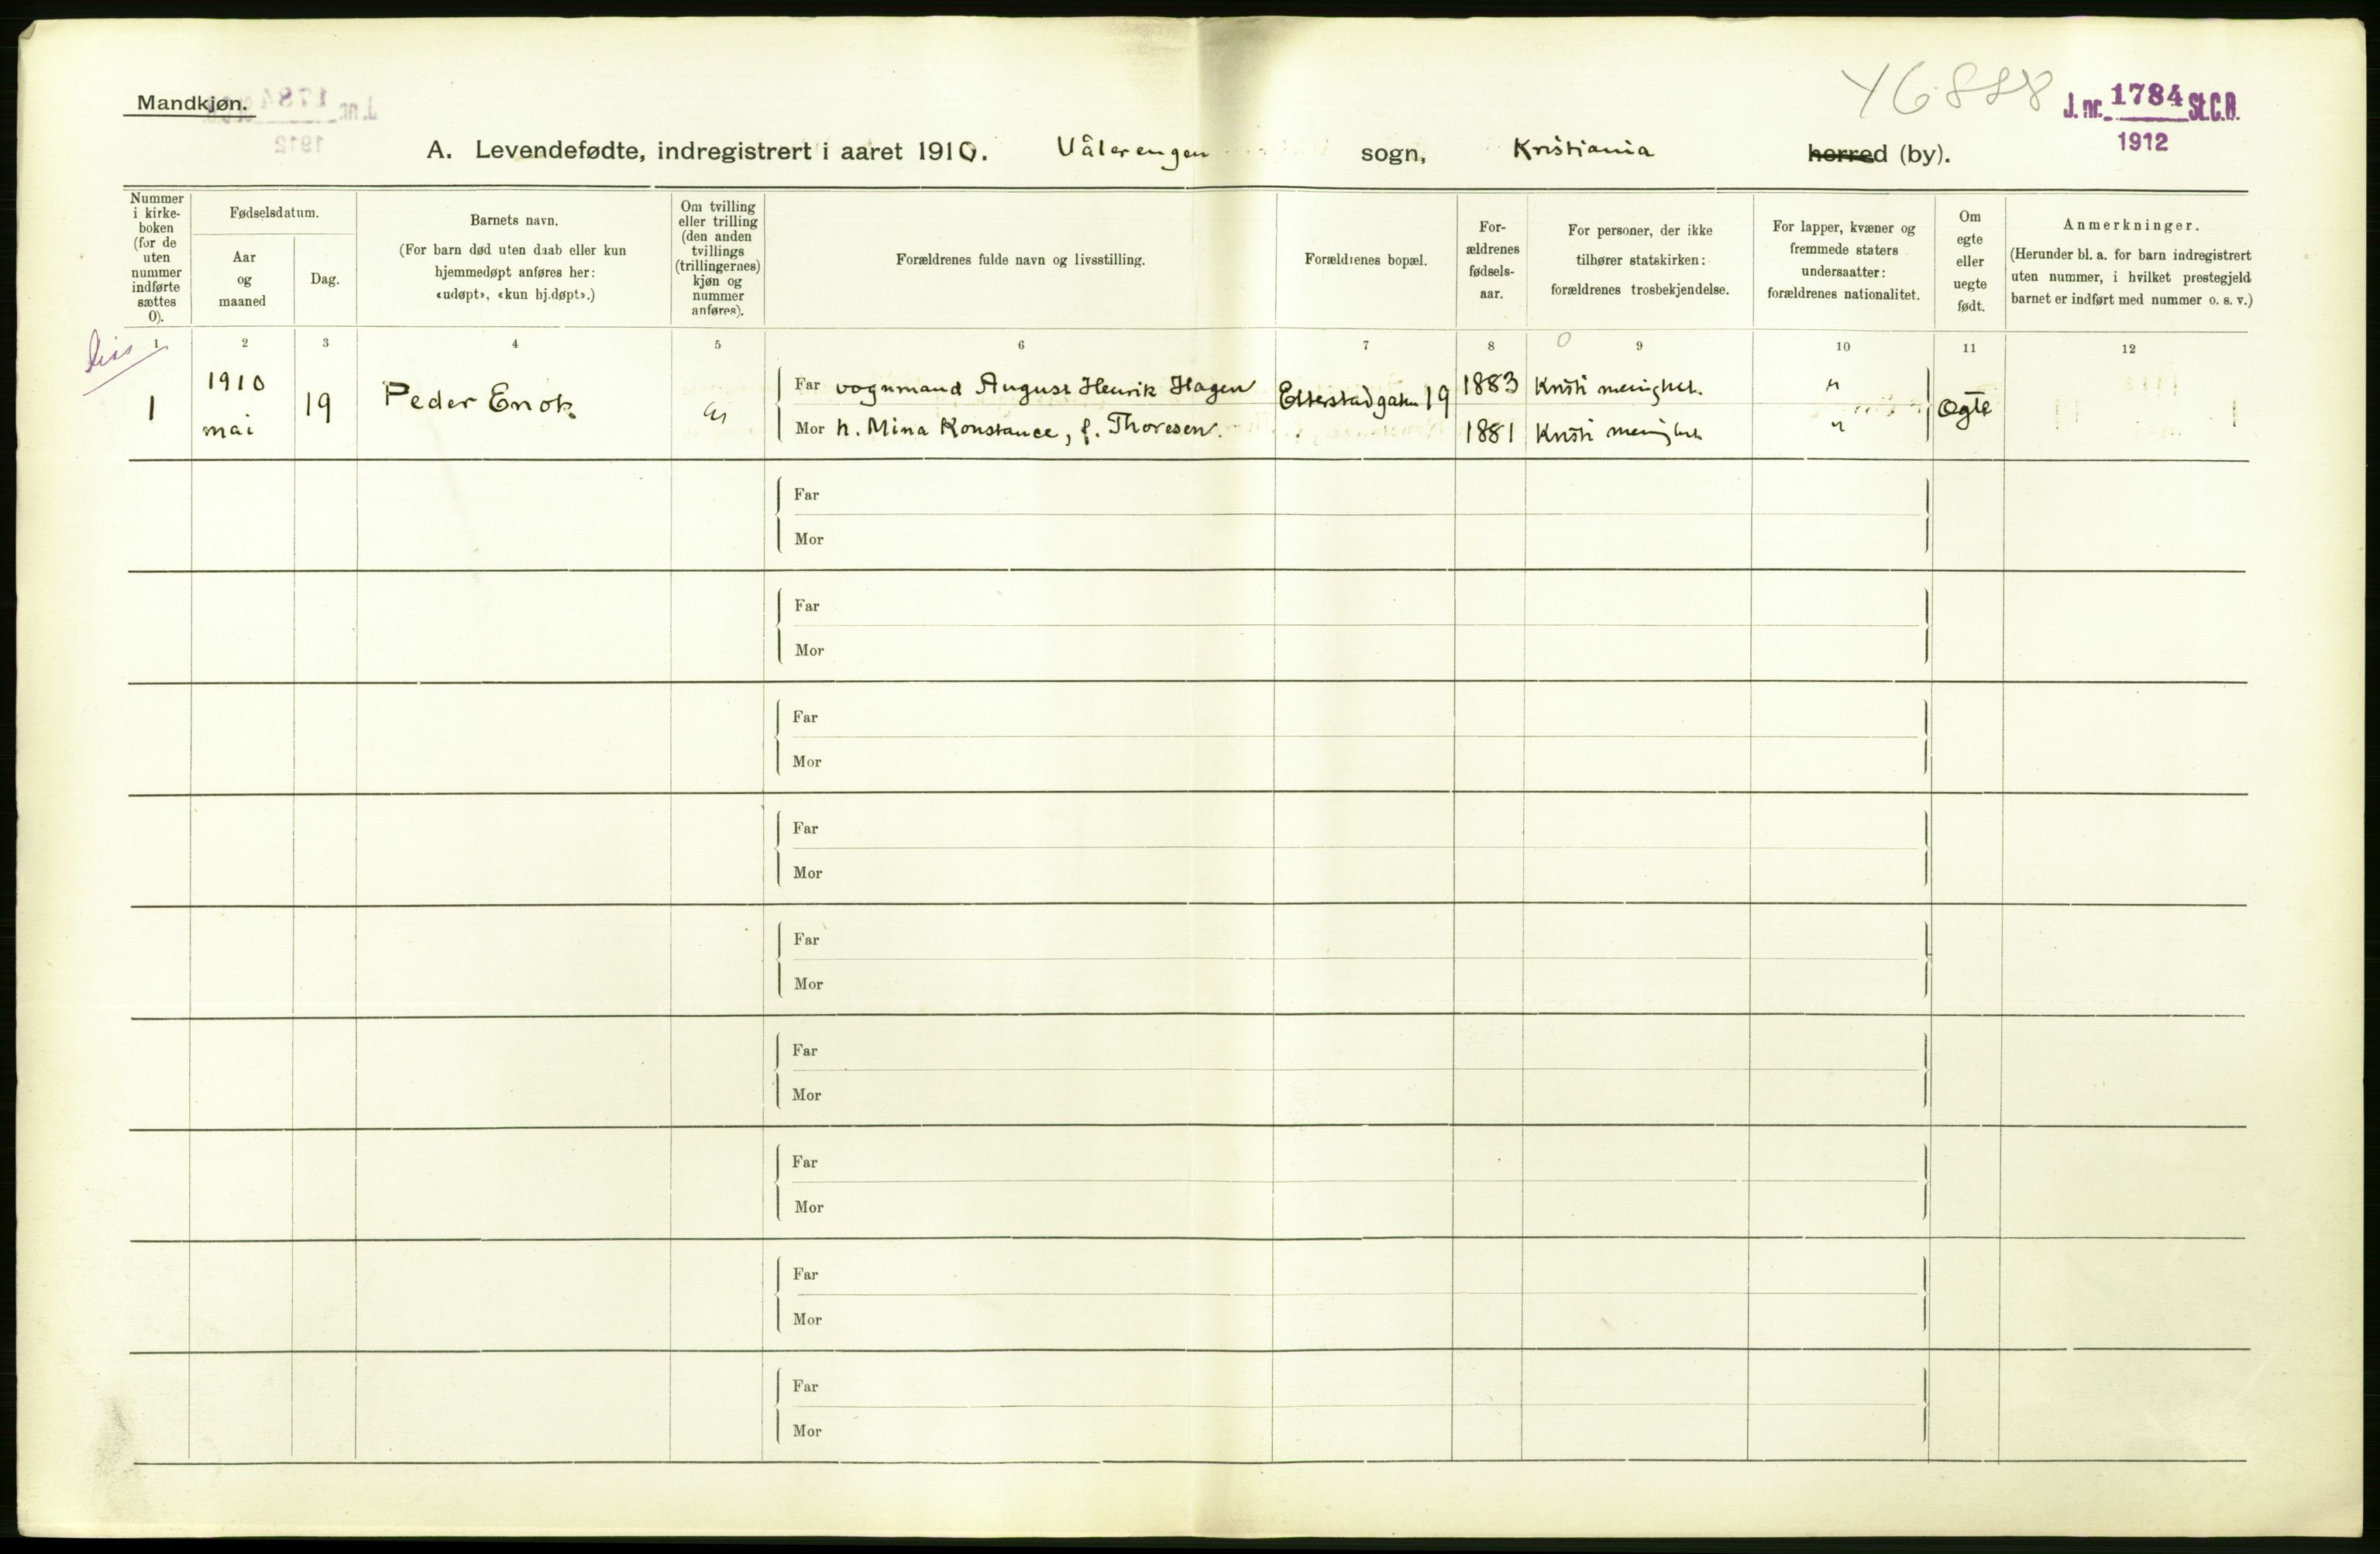 Mandkjøn.
46888
J. nr. 1784 St.C.B.
1912
A. Levendefødte, indregistrert i aaret 1910. Vålerengen sogn, Kristiania herred (by).
Nummer i kirke-boken (for de uten nummer indførte sættes 0).
Fødselsdatum.
Aar og maaned
Dag.
Barnets navn.
(For barn død uten daab eller kun hjemmedøpt anføres her: «udøpt», «kun hj.døpt».)
Om tvilling eller trilling (den anden tvillings (trillingernes) kjøn og nummer anføres).
Forældrenes fulde navn og livsstilling.
Forældrenes bopæl.
For-ældrenes fødsels-aar.
For personer, der ikke tilhører statskirken: forældrenes trosbekjendelse.
For lapper, kvæner og fremmede staters undersaatter: forældrenes nationalitet.
Om egte eller uegte født.
Anmerkninger.
(Herunder bl. a. for barn indregistrert uten nummer, i hvilket prestegjeld barnet er indført med nummer o. s. v.)
1 2 3 4 5 6 7 8 9 10 11 12
1 1910 mai 19 Peder Enok
Far vognmand August Henrik Hagen Etterstadgaten 19 1883 Kristi menighet. " Ogte
Mor h. Mina Konstance, f. Thoresen. 1881 Kristi menighet "
Far
Mor
Far
Mor
Far
Mor
Far
Mor
Far
Mor
Far
Mor
Far
Mor
Far
Mor
Far
Mor